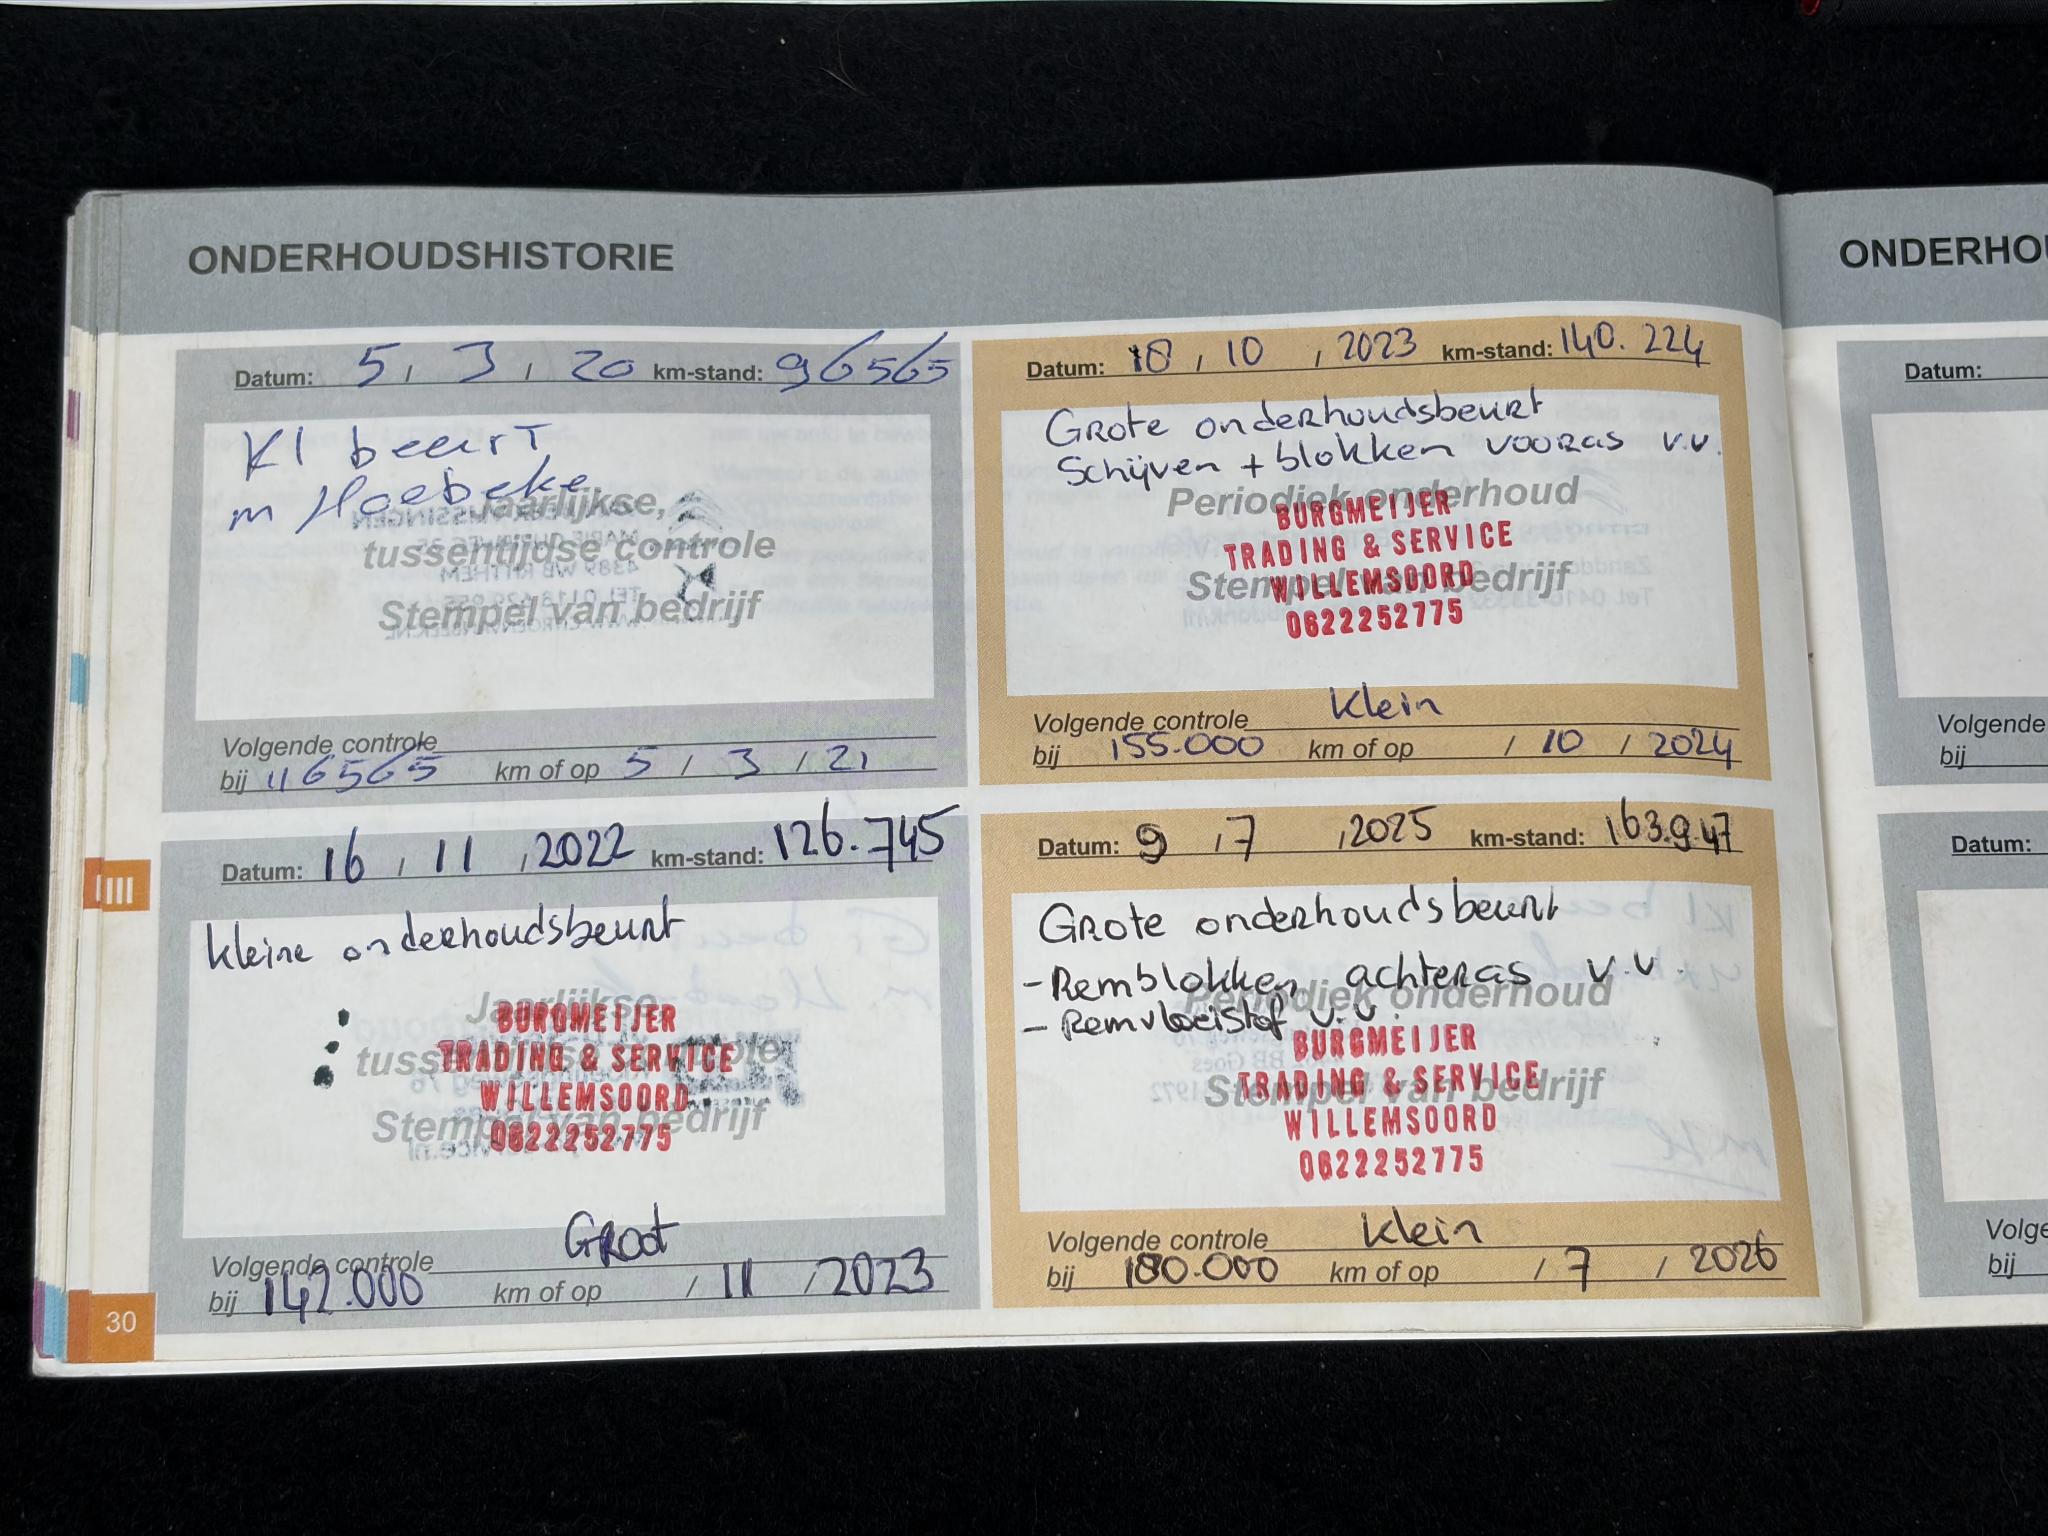 ONDERHOUDSHISTORIE
Datum: 5 , 3 , 20 km-stand: 96565
Kl beurt
m Hoebeke
Jaarlijkse,
tussentijdse controle
Stempel van bedrijf
Volgende controle
bij 116565 km of op 5 / 3 / 21
Datum: 18 , 10 , 2023 km-stand: 140.224
Grote onderhoudsbeurt
Schijven + blokken vooras v.v.
Periodiek onderhoud
BURGMEIJER
TRADING & SERVICE
WILLEMSOORD
Stempel van bedrijf
0622252775
Volgende controle Klein
bij 155.000 km of op / 10 / 2024
Datum: 16 , 11 , 2022 km-stand: 126.745
Kleine onderhoudsbeurt
Jaarlijkse
BURGMEIJER
TRADING & SERVICE
WILLEMSOORD
Stempel van bedrijf
0622252775
Volgende controle Groot
bij 142.000 km of op / 11 / 2023
Datum: 9 , 7 , 2025 km-stand: 163.947
Grote onderhoudsbeurt
- Remblokken achteras v.v.
Periodiek onderhoud
- Remvloeistof v.v.
BURGMEIJER
TRADING & SERVICE
Stempel van bedrijf
WILLEMSOORD
0622252775
Volgende controle Klein
bij 180.000 km of op / 7 / 2026
30
ONDERHOU
Datum:
Volgende
bij
Datum:
Volge
bij